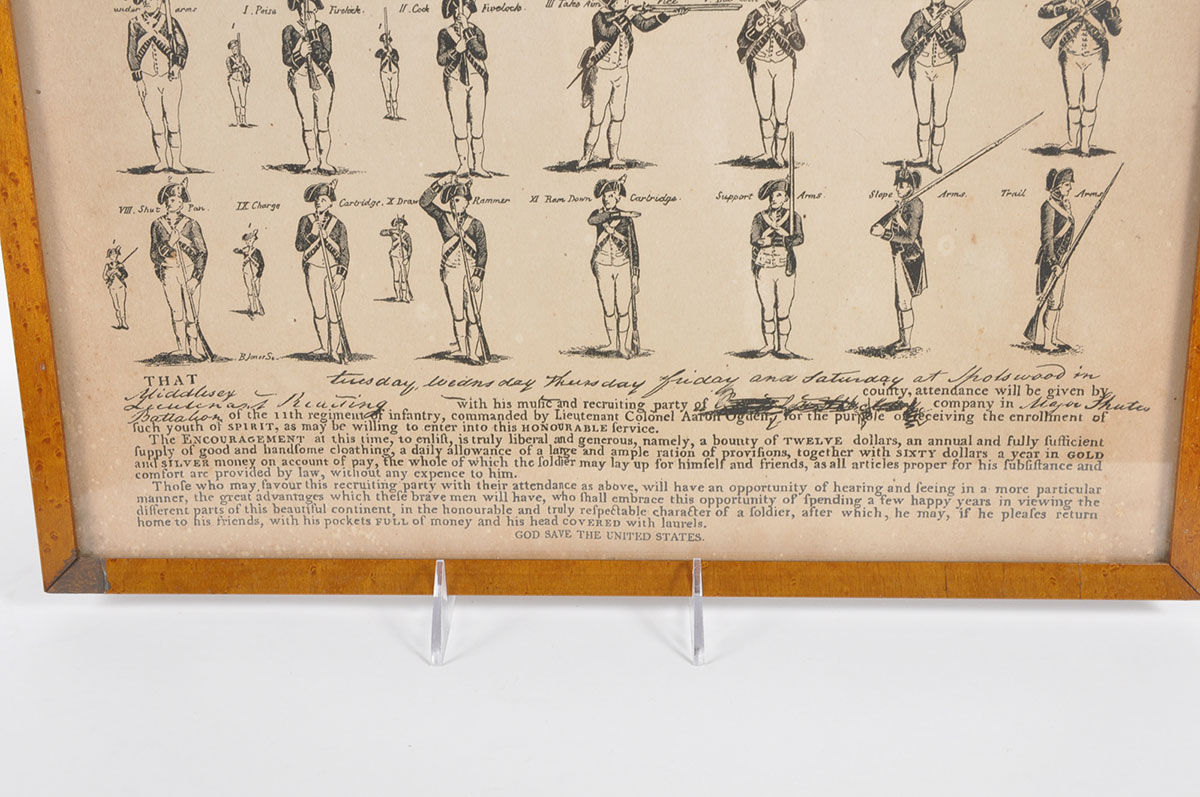 under arms I. Poise Firelock. II. Cock Firelock. III Take Aim Fire
VIII. Shut Pan. IX Charge Cartridge. X Draw Rammer XI Ram Down Cartridge. Support Arms. Slope Arms. Trail Arms
B. Jones Sc.
THAT tuesday, wednsday thursday friday and Saturday at Spotswood in
Middlesex county, attendance will be given by
Lieutenant Recruiting with his muſic and recruiting party of company in Major Shutes
Battalion of the 11th regiment of infantry, commanded by Lieutenant Colonel Aaron Ogden, for the purpoſe of receiving the enrollment of
ſuch youth of SPIRIT, as may be willing to enter into this HONOURABLE ſervice.
The ENCOURAGEMENT at this time, to enliſt, is truly liberal and generous, namely, a bounty of TWELVE dollars, an annual and fully ſufficient
ſupply of good and handſome cloathing, a daily allowance of a large and ample ration of proviſions, together with SIXTY dollars a year in GOLD
and SILVER money on account of pay, the whole of which the ſoldier may lay up for himſelf and friends, as all articles proper for his ſubſiſtance and
comfort are provided by law, without any expence to him.
Thoſe who may favour this recruiting party with their attendance as above, will have an opportunity of hearing and ſeeing in a more particular
manner, the great advantages which theſe brave men will have, who ſhall embrace this opportunity of ſpending a few happy years in viewing the
different parts of this beautiful continent, in the honourable and truly reſpectable character of a ſoldier, after which, he may, if he pleaſes return
home to his friends, with his pockets FULL of money and his head COVERED with laurels.
GOD SAVE THE UNITED STATES.